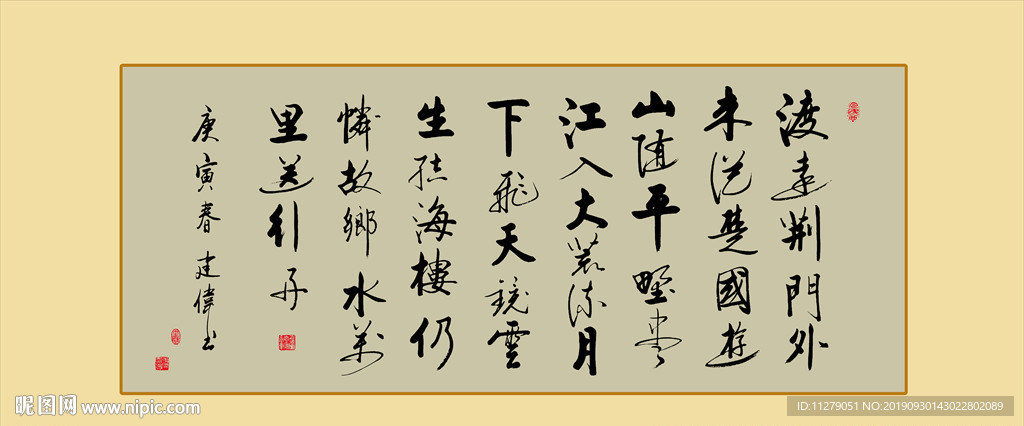 渡遠荆門外
来從楚國遊
山随平野盡
江入大荒流月
下飛天鏡雲
生結海樓仍
憐故鄉水萬
里送行舟
庚寅春 建偉书
昵图网 www.nipic.com
ID:11279051 NO:20190930143022802089